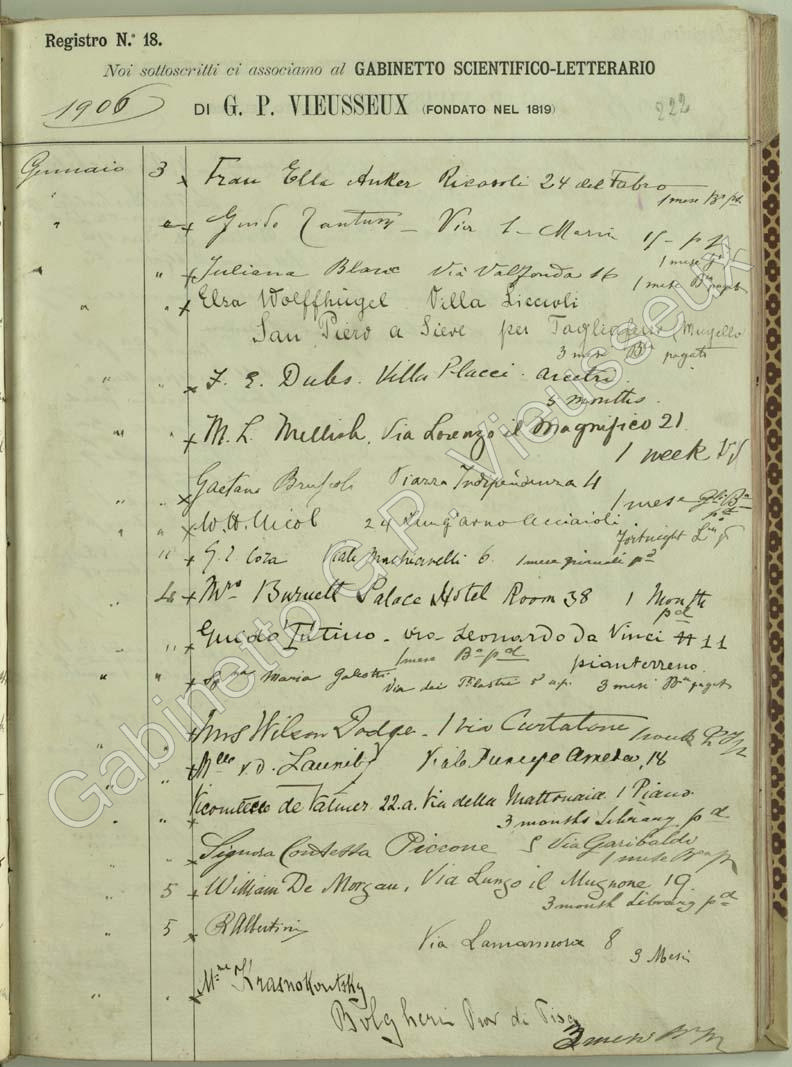 Registro N.º 18.
Noi sottoscritti ci associamo al GABINETTO SCIENTIFICO-LETTERARIO
1906
DI G. P. VIEUSSEUX (FONDATO NEL 1819)
222
Gennaio 3 Frau Ella Anker Ricasoli 24 del Fabro
1 mese Bª pd
" Guido Via S. Maria 15
1 mese
" " Juliana Blanc Via Valfonda 16 1 mese Bª pagato
" " Elsa Wolffhügel Villa Liccioli
San Piero a Sieve per Tagliaferro (Mugello
3 mesi Bª pagati
" " F. E. Dubs. Villa Placci. Arcetri.
3 months.
" " M. L. Mellish. Via Lorenzo il Magnifico 21.
1 week
" " Gaetano Bruscoli Piazza Indipendenza 4
1 mese Bª
pd
" " W. H. Nicol 24 Lungarno Acciaioli.
Fortnight
" G. Cora Viale Machiavelli 6. 1 mese giornali pd
4 Mrs Burnett Palace Hotel Room 38 1 Month
pd
" Guido Tutino - via Leonardo Da Vinci # 11
1 mese Bª pd pianterreno.
" " Sgna Maria Galeotti Via dei Pilastri 3 mesi Bª pagato
" " Mrs Wilson Dodge - 1 via Curtatone 1 month
" " Mlle v. d. Viale Principe Amedeo, 18
" " Vicomtesse de 22.a. Via della Mattonaia 1 Piano
3 months Library pd
" Signora Contessa Piccone 5 Via Garibaldi
1 mese
" 5 William De Morgan, Via Lungo il Mugnone 19.
3 month Library pd
" 5 R Albertini
Via Lamarmora 8
3 Mesi
" " Mme Krasnokoutsky
Bolgheri Prov di Pisa
3 mesi
Gabinetto G.P. Vieusseux